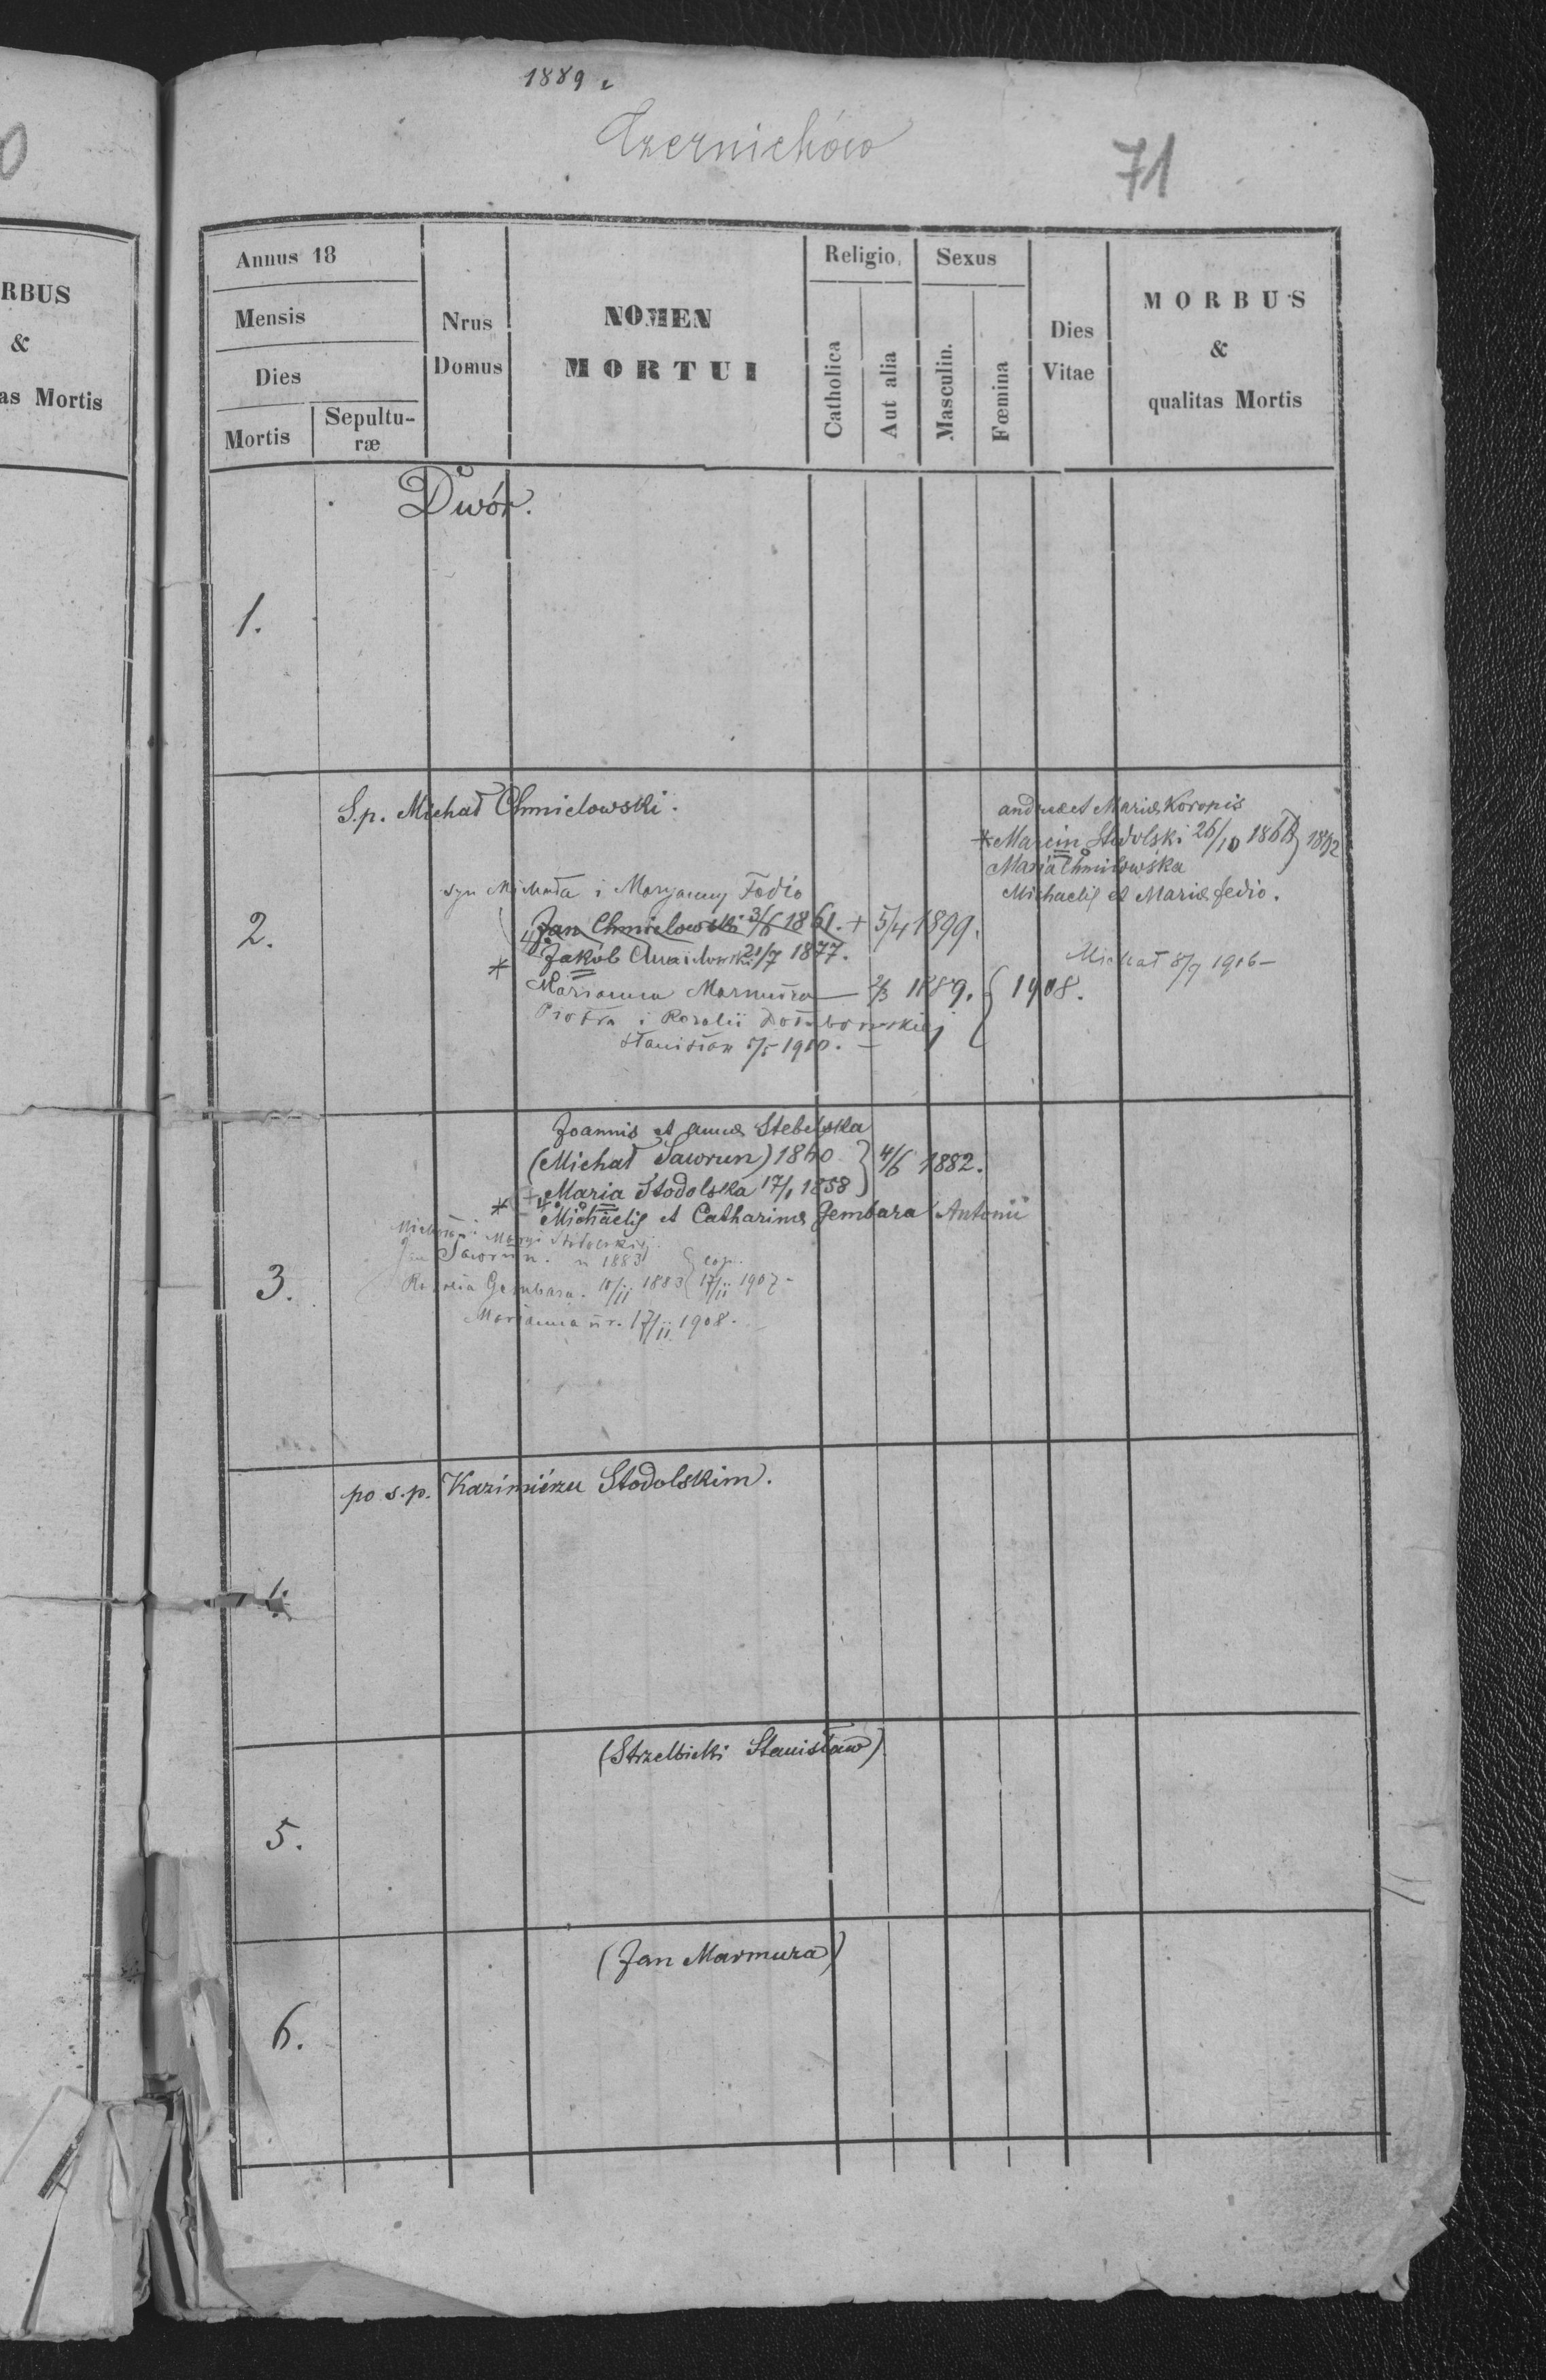 1889 r
Czernichów
71
RBUS
&
as Mortis
Annus 18
Mensis
Dies
Mortis
Sepulturæ
Nrus Domus
NOMEN MORTUI
Religio
Catholica
Aut alia
Sexus
Masculin.
Fœmina
Dies Vitae
MORBUS
&
qualitas Mortis
Dwór.
1.
2.
S.p. Michał Chmielowski.
syn Michała i Maryanny Fedio
Jan Chmielowski 3/6 1861. + 5/4 1899.
* Jakób 21/7 1877.
Marianna Marmura — 2/3 1889. } 1908.
Piotra i Rozalii
Stanisław 5/5 1910. —
Andreae et Mariæ Koropis
* Marcin Stodolski 26/10 } 1892
Maria Chmielowska
Michaelis et Mariæ Fedio.
Michał 8/9 1916 —
3.
Joannis et Annæ Stebelska
(Michał Sawrun) 1860 } 4/6 1882.
* Maria Stodolska 17/1 1858
Michaelis et Catharinæ Gembara Antonii
Michała i Maryi Stodolskiej
Jan Sawrun. 1883 } cop.
Gembara. 10/II 1883 } 17/II 1907 —
Marianna ur. 17/II 1908.
po s.p. Kazimiérzu Stodolskim.
5.
(Strzelbicki Stanisław)
6.
(Jan Marmura)